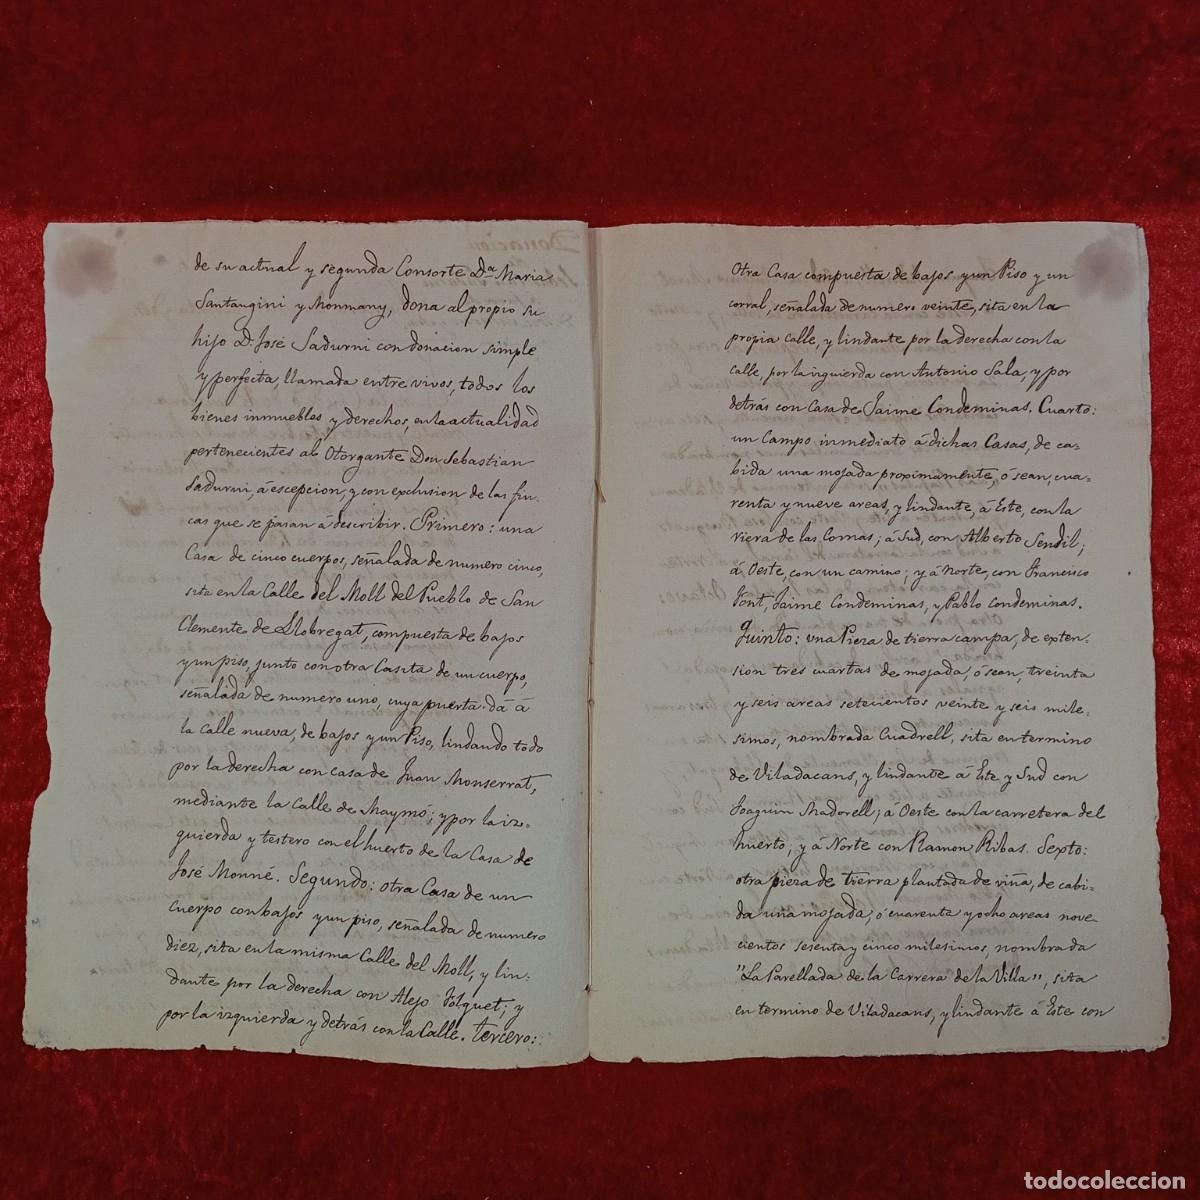 de su actual y segunda Consorte Dª Maria
Santaugini y Monmany, dona al propio su
hijo D. José Sadurni con donacion simple
y perfecta, llamada entre vivos, todos los
bienes inmuebles y derechos, en la actualidad
pertenecientes al Otorgante Don Sebastian
Sadurni, á escepcion, y con exclusion de las fin-
cas que se pasan á describir. Primero: una
Casa de cinco cuerpos, señalada de numero cinco,
sita en la Calle del Moll del Pueblo de San
Clemente de Llobregat, compuesta de bajos
y un piso, junto con otra Casita de un cuerpo,
señalada de numero uno, cuya puerta dá á
la Calle nueva, de bajos y un Piso, lindando todo
por la derecha con casa de Juan Monserrat,
mediante la Calle de Maymó; y por la iz-
quierda y testero con el huerto de la Casa de
José Monné. Segundo: otra Casa de un
cuerpo con bajos y un piso, señalada de numero
diez, sita en la misma Calle del Moll, y lin-
dante por la derecha con Alejo Folguet; y
por la izquierda y detrás con la Calle. Tercero:
Otra Casa compuesta de bajos y un Piso y un
corral, señalada de numero veinte, sita en la
propia calle, y lindante por la derecha con la
calle, por la izquierda con Antonio Sala, y por
detrás con Casa de Jaime Condeminas. Cuarto:
un Campo inmediato á dichas Casas, de ca-
bida una mojada proximamente, ó sean, cua-
renta y nueve areas, y lindante, á Este, con la
riera de las Comas; á Sud, con Alberto Sendil;
á Oeste, con un camino; y á Norte, con Francisco
Font, Jaime Condeminas, y Pablo Condeminas.
Quinto: una Pieza de tierra campa, de exten-
sion tres cuartas de mojada, ó sean, treinta
y seis areas setecientos veinte y seis mile-
simos, nombrada Cuadrell, sita en termino
de Viladacans, y lindante á Este y Sud con
Joaquin Madorell; á Oeste con la carretera del
huerto; y á Norte con Ramon Ribas. Sexto:
otra pieza de tierra plantada de viña, de cabi-
da una mojada, ó cuarenta y ocho areas nove-
cientos sesenta y cinco milesimos, nombrada
"La Parellada de la Carrera de la Villa", sita
en termino de Viladacans, y lindante á Este con
Donacion
todocoleccion